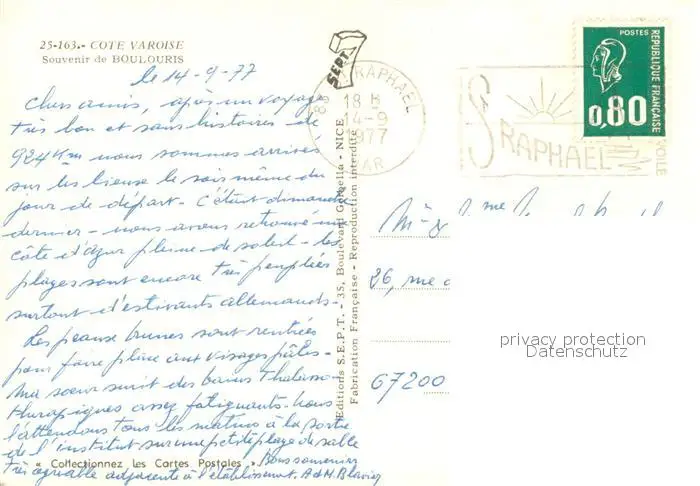 25-163.- COTE VAROISE
Souvenir de BOULOURIS
le 14-9-77
Chers amis, après un voyage
très bon et sans histoires de
924 Km nous sommes arrivés
sur les lieux le soir même du
jour de départ - C'était dimanche
dernier - nous avons retrouvé une
côte d'azur pleine de soleil - les
plages sont encore très peuplées
surtout d'estivants allemands -
Les peaux brunes sont rentrées
pour faire place aux visages pâles -
Ma soeur suit des bains Thalasso-
thérapiques assez fatiguants. Nous
l'attendons tous les matins à la sortie
de l'institut sur une petite plage de sable
très agréable adjacente à l'établissement.
Bons souvenirs
A et M.
« Collectionnez les Cartes Postales »
Editions S.E.P.T. - 35, Boulevard - NICE
Fabrication Française - Reproduction interdite
SEPT.
ST RAPHAEL
18 H
14-9
1977
VAR
ST RAPHAEL
VOILE
POSTES
REPUBLIQUE FRANÇAISE
0,80
M. & Mme
26, rue d
67200
privacy protection
Datenschutz